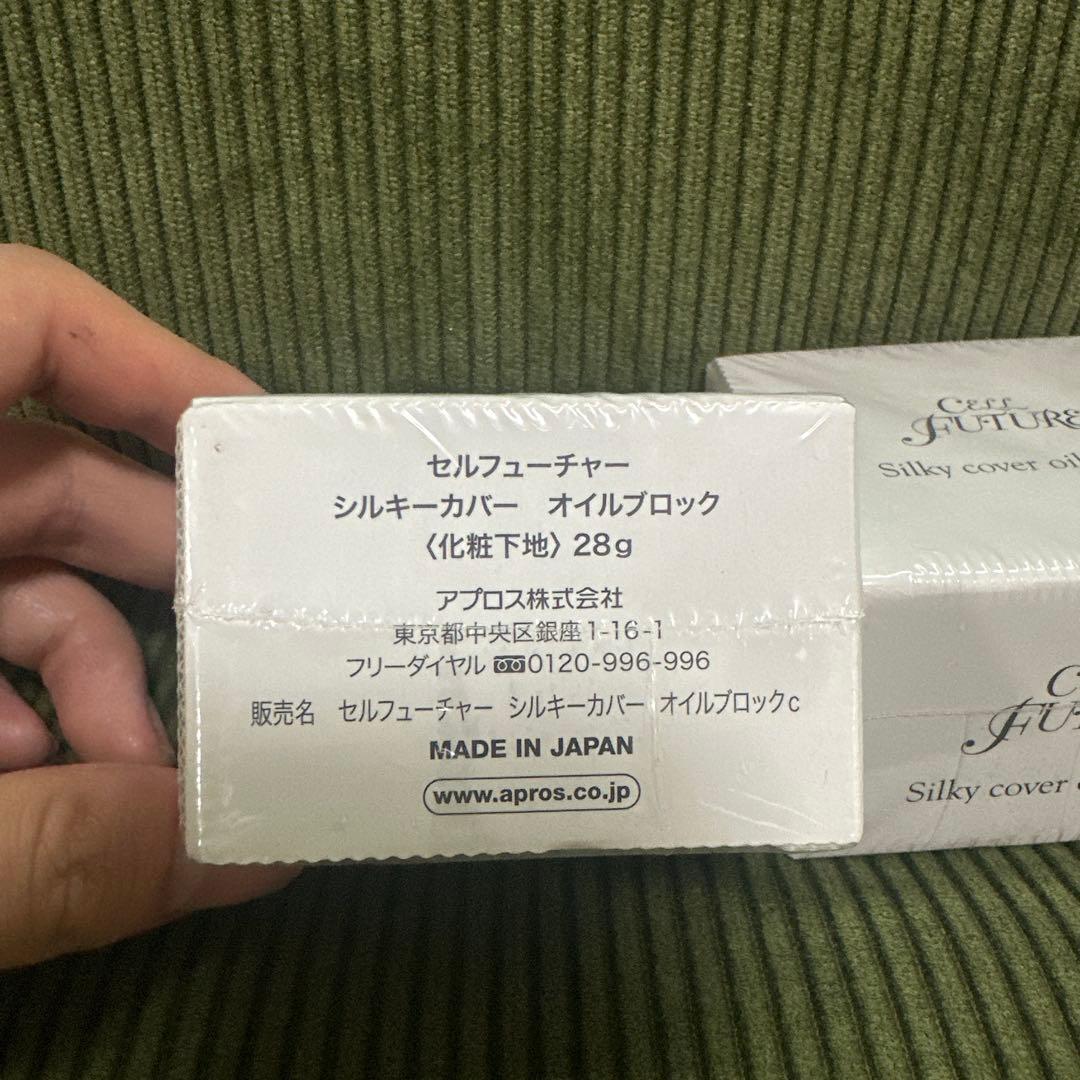 セルフューチャー
シルキーカバー　オイルブロック
〈化粧下地〉28g
アプロス株式会社
東京都中央区銀座1-16-1
フリーダイヤル 0120-996-996
販売名　セルフューチャー　シルキーカバー　オイルブロックc
MADE IN JAPAN
www.apros.co.jp
CELL
FUTURE
Silky cover oil
Silky cover